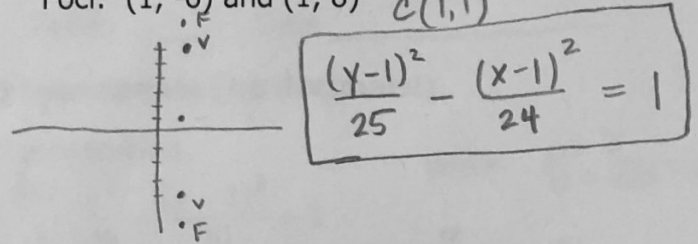 Foci: (1, -6) and (1, 8) C(1,1)
F
V
(y-1)²/25 - (x-1)²/24 = 1
V
F